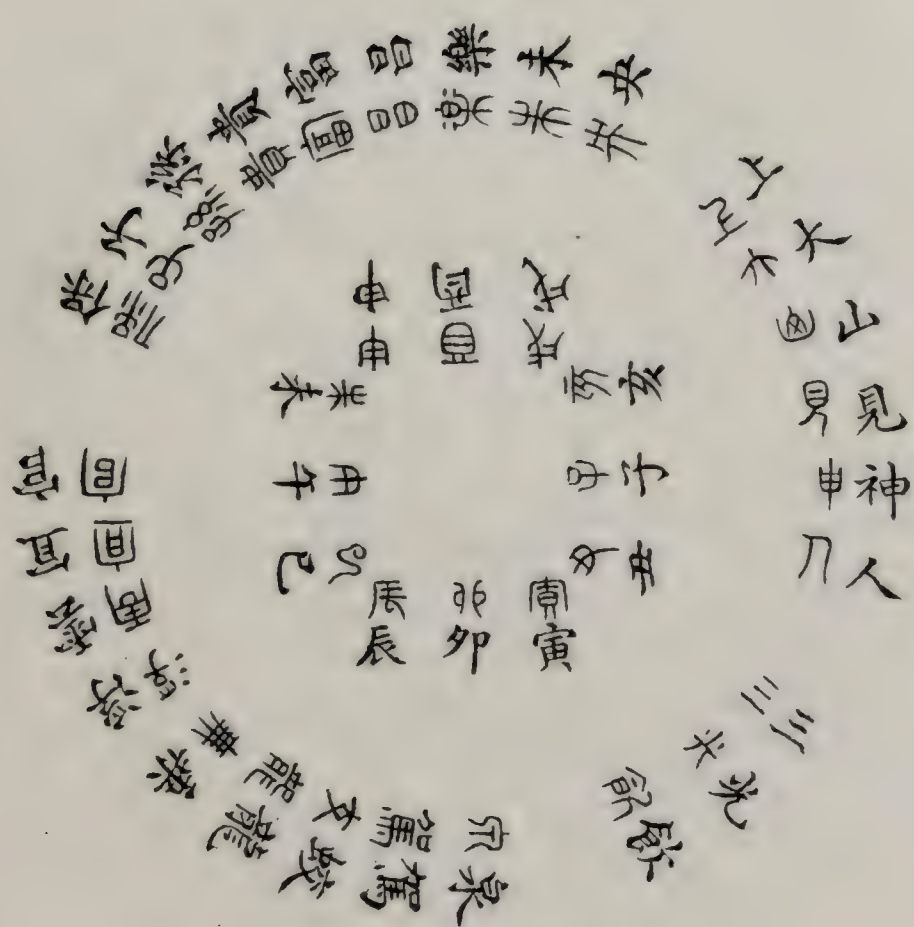 上大山見神人
三光飲
泉駕蛟龍乘浮雲宜官
保子孫貴富昌樂未央
子丑寅卯辰巳午未申酉戌亥